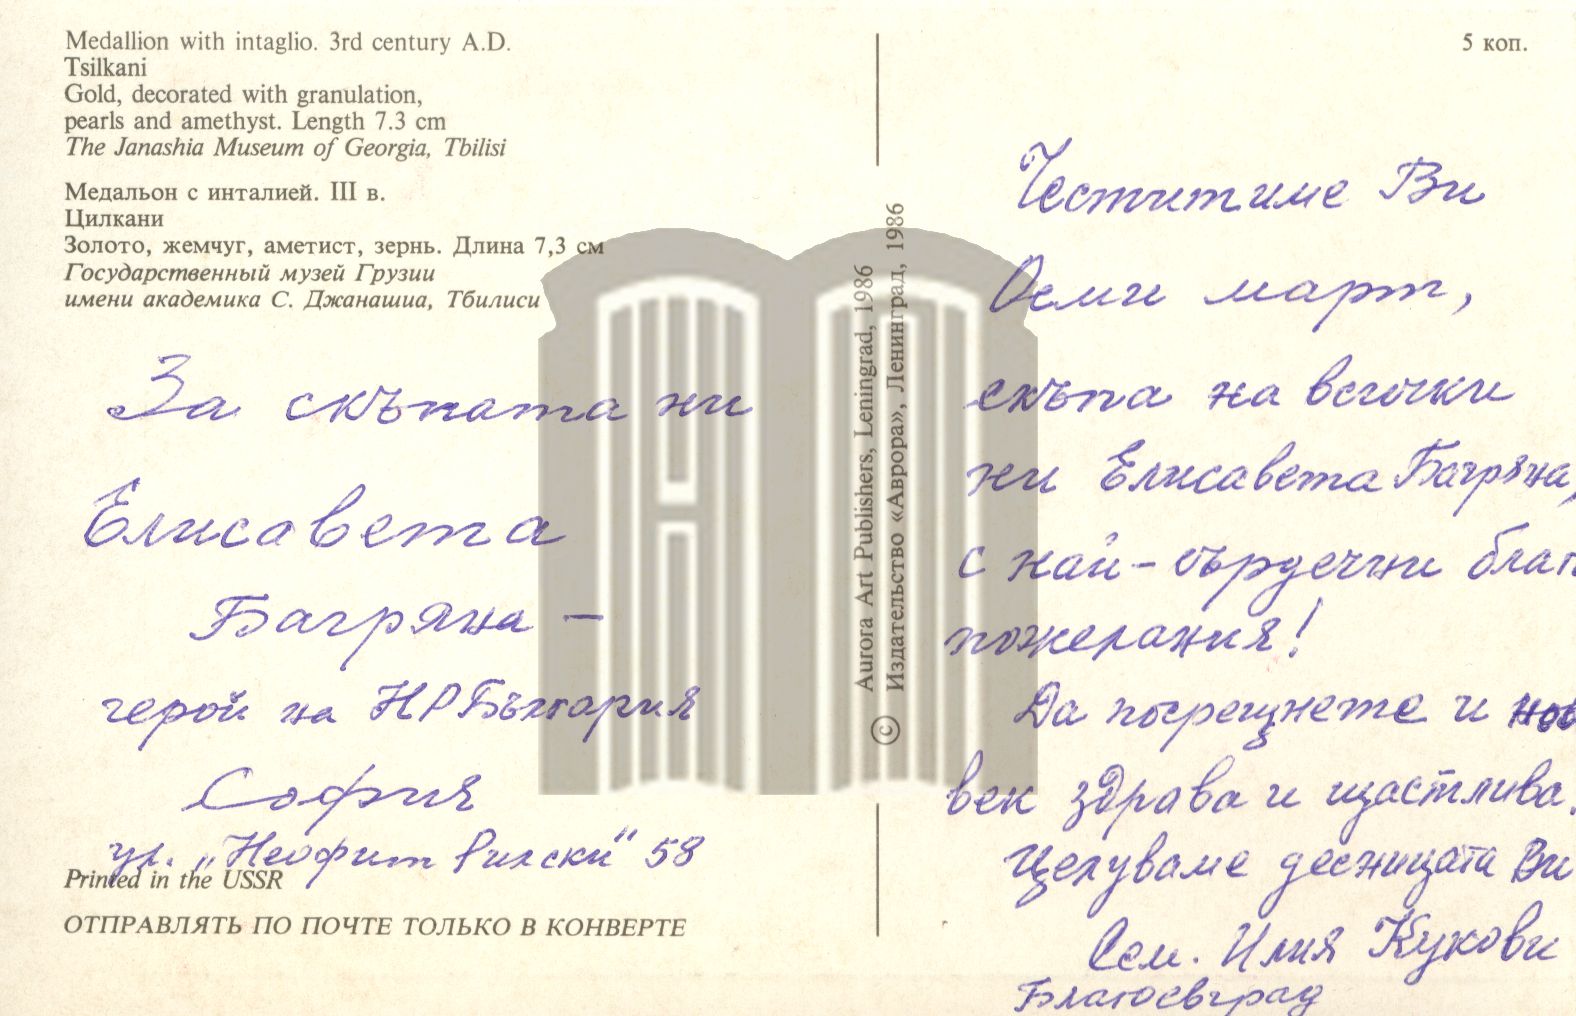 Medallion with intaglio. 3rd century A.D.
Tsilkani
Gold, decorated with granulation,
pearls and amethyst. Length 7.3 cm
The Janashia Museum of Georgia, Tbilisi
Медальон с инталией. III в.
Цилкани
Золото, жемчуг, аметист, зернь. Длина 7,3 см
Государственный музей Грузии
имени академика С. Джанашиа, Тбилиси
За скъпата ни
Елисавета
Багряна –
герой на НР България
София
ул. „Неофит Рилски" 58
Printed in the USSR
ОТПРАВЛЯТЬ ПО ПОЧТЕ ТОЛЬКО В КОНВЕРТЕ
© Aurora Art Publishers, Leningrad, 1986
Издательство «Аврора», Ленинград, 1986
5 коп.
Честитиме Ви
Осми март,
скъпа на всички
ни Елисавета Багряна,
с най-сърдечни благо
пожелания!
Да посрещнете и нов
век здрава и щастлива.
Целуваме десницата Ви
Сем. Илия Кукови
Благоевград